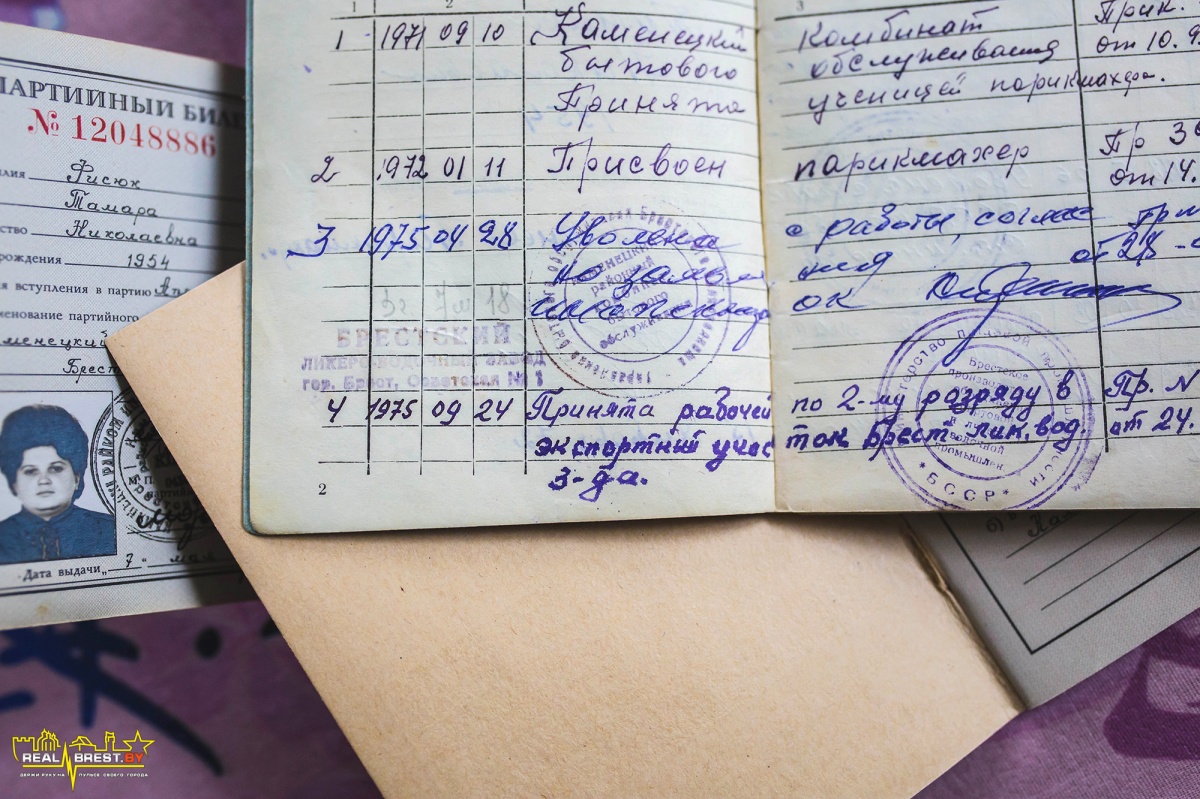 ПАРТИЙНЫЙ БИЛЕ
№ 12048886
Фисюк
Тамара
ство Николаевна
рождения 1954
я вступления в партию Апр
менование партийного
менецкий
Брест
Дата выдачи „ 7 " мая
1 2 3
1 1971 09 10 Каменецкий комбинат Прик.
бытового обслуживания от 10.9
Принята ученицей парикмахера.
2 1972 01 11 Присвоен парикмахер Пр 39
от 14.
3 1975 04 28 Уволена с работы, соглас
от 28
БРЕСТСКИЙ
ЛИКЕРО-ВОДОЧНЫЙ ЗАВОД
гор. Брест, Советская № 1
4 1975 09 24 Принята рабочей по 2-му разряду в Пр. N
экспортный учас ток Брест. лик. вод. от 24.
з-да.
2
* БССР *
REAL BREST.BY
ДЕРЖИ РУКУ НА ПУЛЬСЕ СВОЕГО ГОРОДА